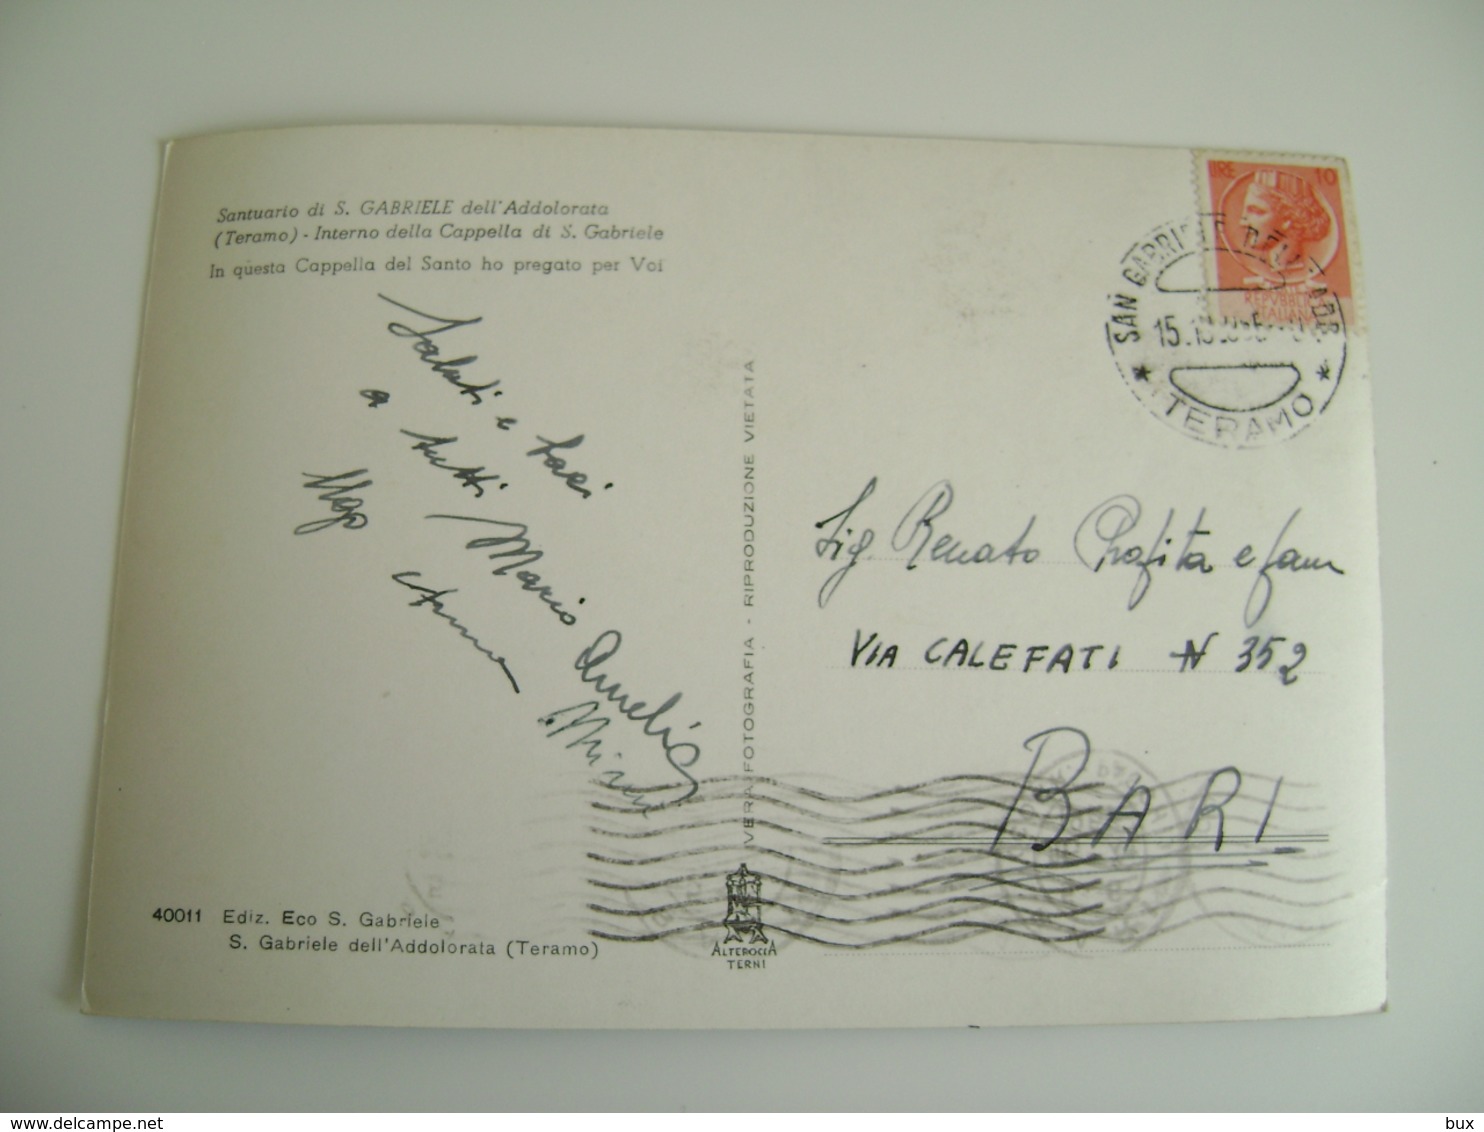 Santuario di S. GABRIELE dell'Addolorata
(Teramo) - Interno della Cappella di S. Gabriele
In questa Cappella del Santo ho pregato per Voi
Saluti e baci
a tutti Mario Amelia
Ugo Anna
VERA FOTOGRAFIA - RIPRODUZIONE VIETATA
LIRE 10
REPUBBLICA
ITALIANA
SAN GABRIELE
TERAMO
Sig. Renato Profita e fam
VIA CALEFATI N 352
BARI
40011 Ediz. Eco S. Gabriele
S. Gabriele dell'Addolorata (Teramo)
ALTEROCCA
TERNI
delcampe.net
bux